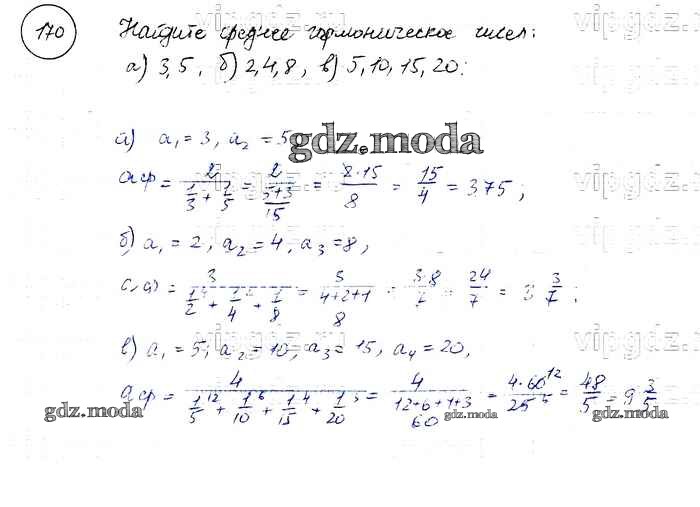 170 Найдите среднее гармоническое чисел:
а) 3,5, б) 2,4,8, в) 5,10,15,20:
а) a₁ = 3, a₂ = 5
gdz.moda
aср = 2 / (1/3 + 1/5) = 2 / ((5+3)/15) = 2·15/8 = 15/4 = 3,75;
б) a₁ = 2, a₂ = 4, a₃ = 8,
= 3 / (1/2 + 1/4 + 1/8) = 3 / ((4+2+1)/8) = 3·8/7 = 24/7 = 3 3/7;
в) a₁ = 5, a₂ = 10, a₃ = 15, a₄ = 20,
aср = 4 / (1/5 ¹² + 1/10 ⁶ + 1/15 ⁴ + 1/20 ³) = 4 / ((12+6+4+3)/60) = 4·60 ¹²/25 ⁵ = 48/5 = 9 3/5
gdz.moda
gdz.moda
gdz.moda
vipgdz
vipgdz
vipgdz
vipgdz
vipgdz